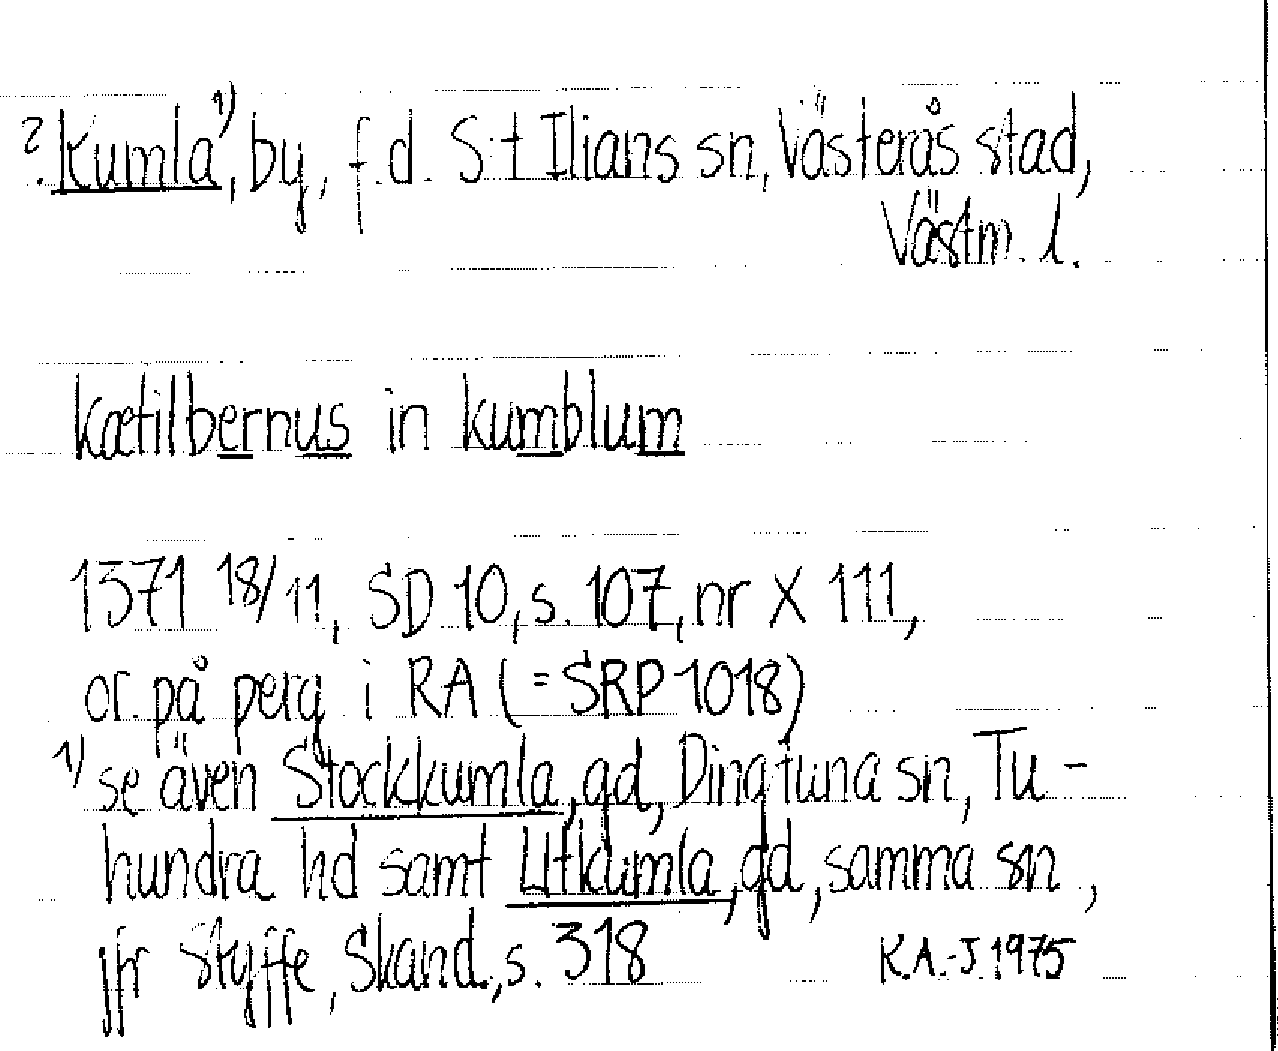 ? Kumla 1), by, f.d. S:t Ilians sn, Västerås stad,
Västm. l.
kætilbernus in kumblum
1371 18/11, SD 10, s. 107, nr X 111,
or. på perg i RA (= SRP 1018)
1) se även Stockkumla, gd, Dingtuna sn, Tu-
hundra hd samt Utkumla, gd, samma sn,
jfr Styffe, Skand., s. 318
K.A.-J. 1975